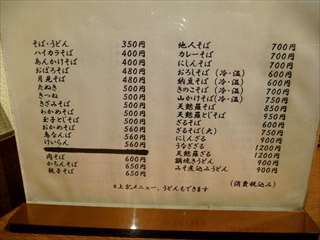 そば・うどん 350円
ハイカラそば 400円
あんかけそば 400円
おぼろそば 480円
月見そば 480円
たぬき 500円
きつね 500円
きざみそば 500円
わかめそば 500円
玉子とじそば 500円
おかめそば 560円
鳥なんば 560円
けいらん 560円
肉そば 600円
かちんそば 650円
親子そば 650円
他人そば 700円
カレーそば 700円
にしんそば 700円
おろしそば (冷・温) 600円
納豆そば (冷・温) 600円
きのこそば (冷・温) 700円
山かけそば (冷・温) 750円
天麩羅そば 850円
天麩羅とじそば 950円
ざるそば 600円
ざるそば(大) 750円
にしんざる 900円
うなざる 1200円
天麩羅ざる 1200円
鍋焼きうどん 900円
みそ煮込みうどん 900円
※上記メニュー、うどんもできます (消費税込み)